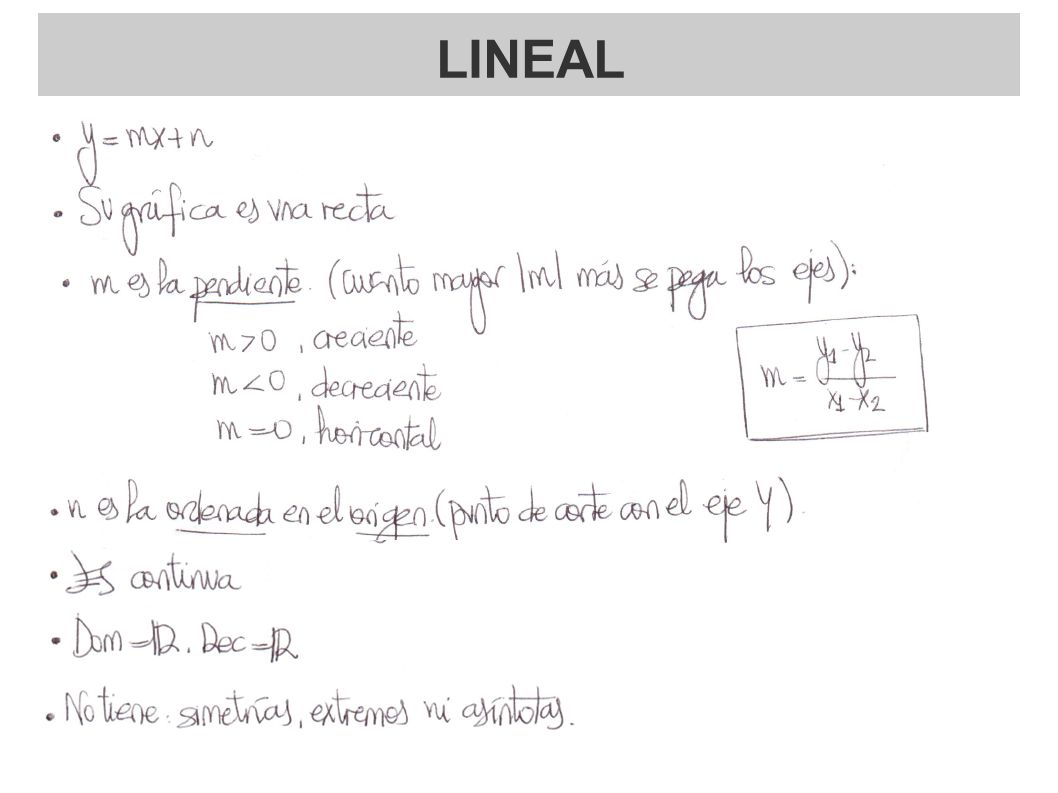 LINEAL
• y = mx + n
• Su gráfica es una recta
• m es la pendiente. (cuanto mayor |m| más se pega los ejes):
m > 0, creciente
m < 0, decreciente
m = 0, horizontal
m = y1 - y2 / x1 - x2
• n es la ordenada en el origen. (punto de corte con el eje Y).
• Es continua
• Dom = ℝ. Rec = ℝ
• No tiene: simetrías, extremos ni asíntotas.